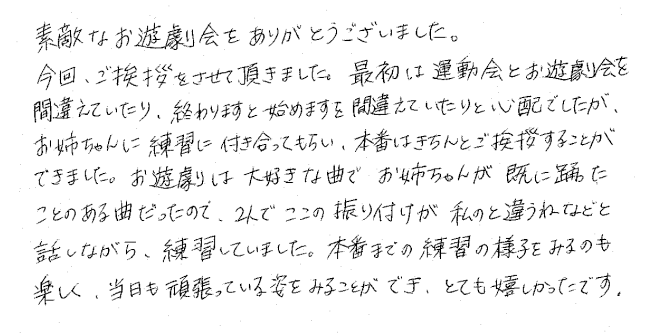 素敵なお遊劇会をありがとうございました。
今回、ご挨拶をさせて頂きました。最初は運動会とお遊劇会を
間違えていたり、終わりますと始めますを間違えていたりと心配でしたが、
お姉ちゃんに練習に付き合ってもらい、本番はきちんとご挨拶することが
できました。お遊劇は大好きな曲でお姉ちゃんが既に踊った
ことのある曲だったので、2人でここの振り付けが私のと違うねなどと
話しながら、練習していました。本番までの練習の様子をみるのも
楽しく、当日も頑張っている姿をみることができ、とても嬉しかったです。